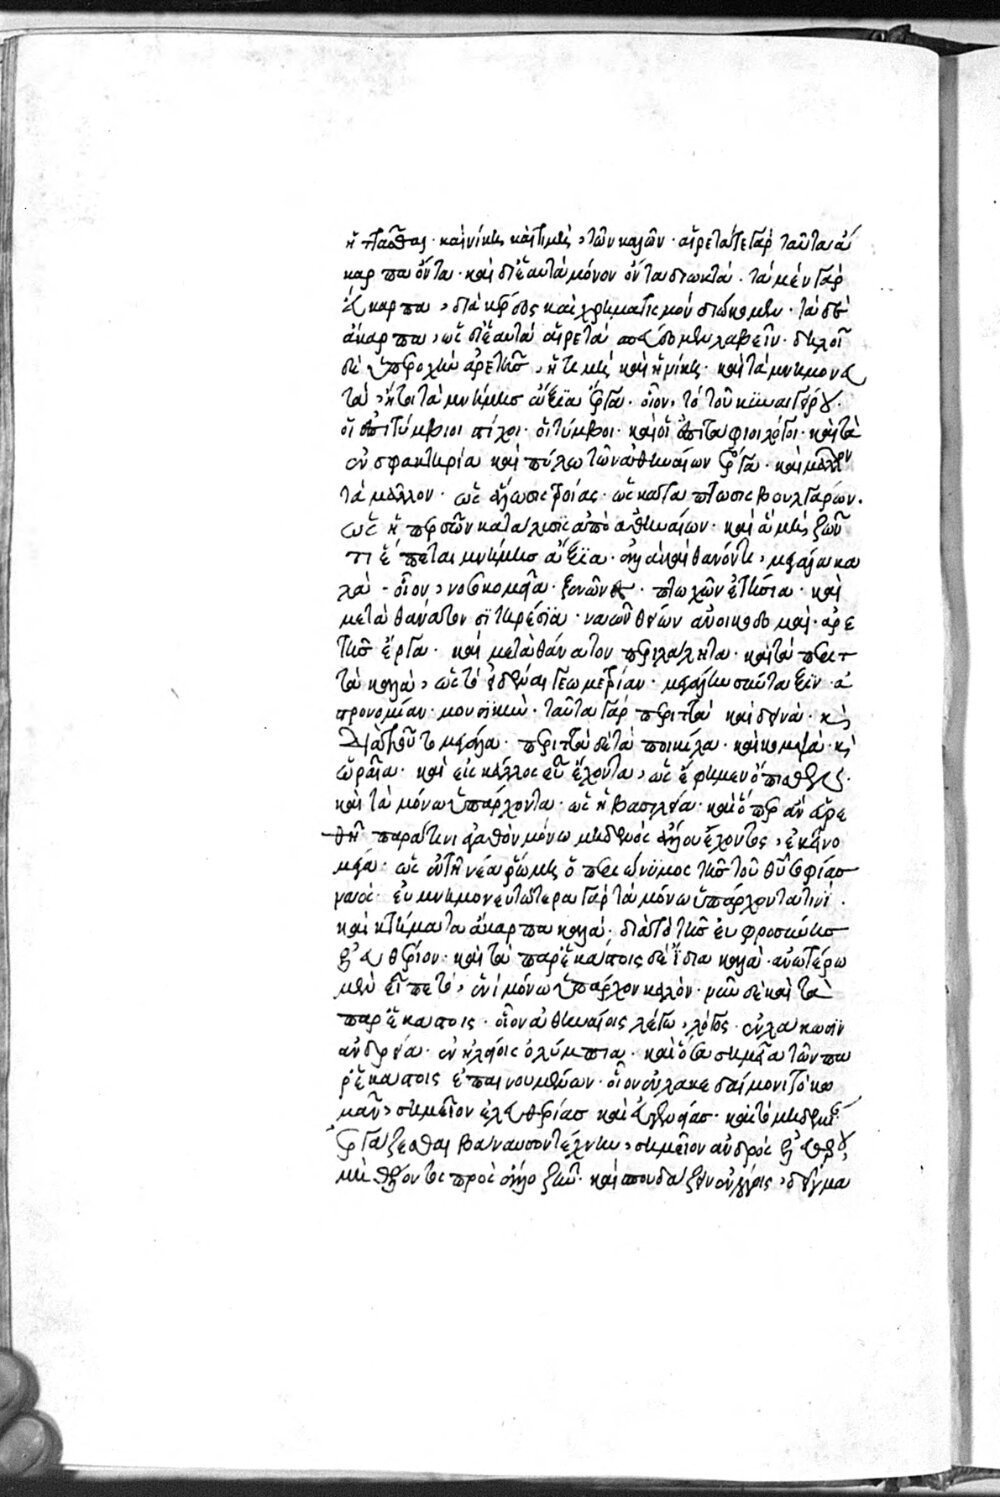 ἡττᾶσθαι· καὶ νίκης καὶ τιμῆς, τῶν καλῶν· αἱρετά τε γὰρ ταῦτα ἄ
καρπα ὄντα· καὶ δι' ἑαυτὰ μόνον ὄντα διωκτά· τὰ μὲν γὰρ
ἔγκαρπα, διὰ κέρδος καὶ χρηματισμὸν διώκομεν· τὰ δὲ
ἄκαρπα, ὡς δι' ἑαυτὰ αἱρετὰ σπεύδομεν λαβεῖν· δηλοῖ
δὲ ὑπεροχὴν ἀρετῆς, ἡ τιμὴ καὶ ἡ νίκη· καὶ τὰ μνημονευ
τά, ἤτοι τὰ μνήμης ἄξια ἔργα· οἷον, τὸ τοῦ κυναιγείρου·
οἱ ἐπιτύμβιοι στίχοι· οἱ τύμβοι· καὶ οἱ ἐπιτάφιοι λόγοι· καὶ τὰ
ἐν σφακτηρία καὶ πύλω τῶν ἀθηναίων ἔργα· καὶ μᾶλλον
τὰ μᾶλλον· ὡς ἅλωσις τροίας· ὡς κατάπτωσις βουλγάρων·
ὡς ἡ περσῶν κατάλυσις ἀπὸ ἀθηναίων· καὶ ἃ μὴ ζῶν
τι ἕπεται μνήμης ἄξια· ἀλλὰ καὶ θανόντι, μεγάλα κα
λά· οἷον, νοσοκομεῖα· ξενῶνες· πτωχῶν ἐτήσια· καὶ
μετὰ θάνατον σιτηρέσια· ναῶν θείων ἀνοικοδομαί· ἀρε
τῆς ἔργα· καὶ μετὰ θάνατον περιλάλητα· καὶ τὰ περιτ
τὰ καλά, ὡς τὸ εἰδέναι γεωμετρίαν· μεγάλην σύνταξιν· ἀ
στρονομίαν· μουσικήν· ταῦτα γὰρ περιττὰ καὶ δεινά· καὶ
διὰ τοῦτο μεγάλα· περιττὰ δὲ τὰ ποικίλα· καὶ κομψά· καὶ
ὡραῖα· καὶ εἰς κάλλος εὖ ἔχοντα, ὡς ἔφημεν ὄπισθεν·
καὶ τὰ μόνω ὑπάρχοντα· ὡς ἡ βασιλεία· καὶ ὅπερ ἂν εὑρε
θῆ παρά τινι ἀγαθὸν μόνω μηδενὸς ἄλλου ἔχοντος, ἐκεῖνο
μέγα· ὡς ἐν τῆ νέα ῥώμη ὁ περιώνυμος τῆς τοῦ θεοῦ σοφίας
ναός· εὐμνημονευτότερα γὰρ τὰ μόνω ὑπάρχοντα τινί·
καὶ κτήματα ἄκαρπα καλά· διὰ τὸ τῆς εὐφροσύνης
ἐλευθέριον· καὶ τὰ παρ' ἑκάστοις δὲ ἴδια καλά· ἀνωτέρω
μὲν εἶπε τὸ, ἑνὶ μόνω ὑπάρχον καλόν· νῦν δὲ καὶ τὰ
παρ' ἑκάστοις· οἷον ἀθηναίοις λέγω, λόγος· ἐν λάκωσιν
ἀνδρεία· ἐν ἠλείοις ὀλύμπια· καὶ ὅσα σημεῖα τῶν πα
ρ' ἑκάστοις ἐπαινουμένων· οἷον ἐν λακεδαίμονι τὸ κο
μᾶν, σημεῖον ἐλευθερίας καὶ εὐγενείας· καὶ τὸ μηδεμίαν
ἐργάζεσθαι βάναυσον τέχνην, σημεῖον ἀνδρὸς ἐλευθέρου,
μὴ θέλοντος πρὸς ἄλλο ζῆν· καὶ σπουδάζειν ἐν λόγοις, δεῖγμα